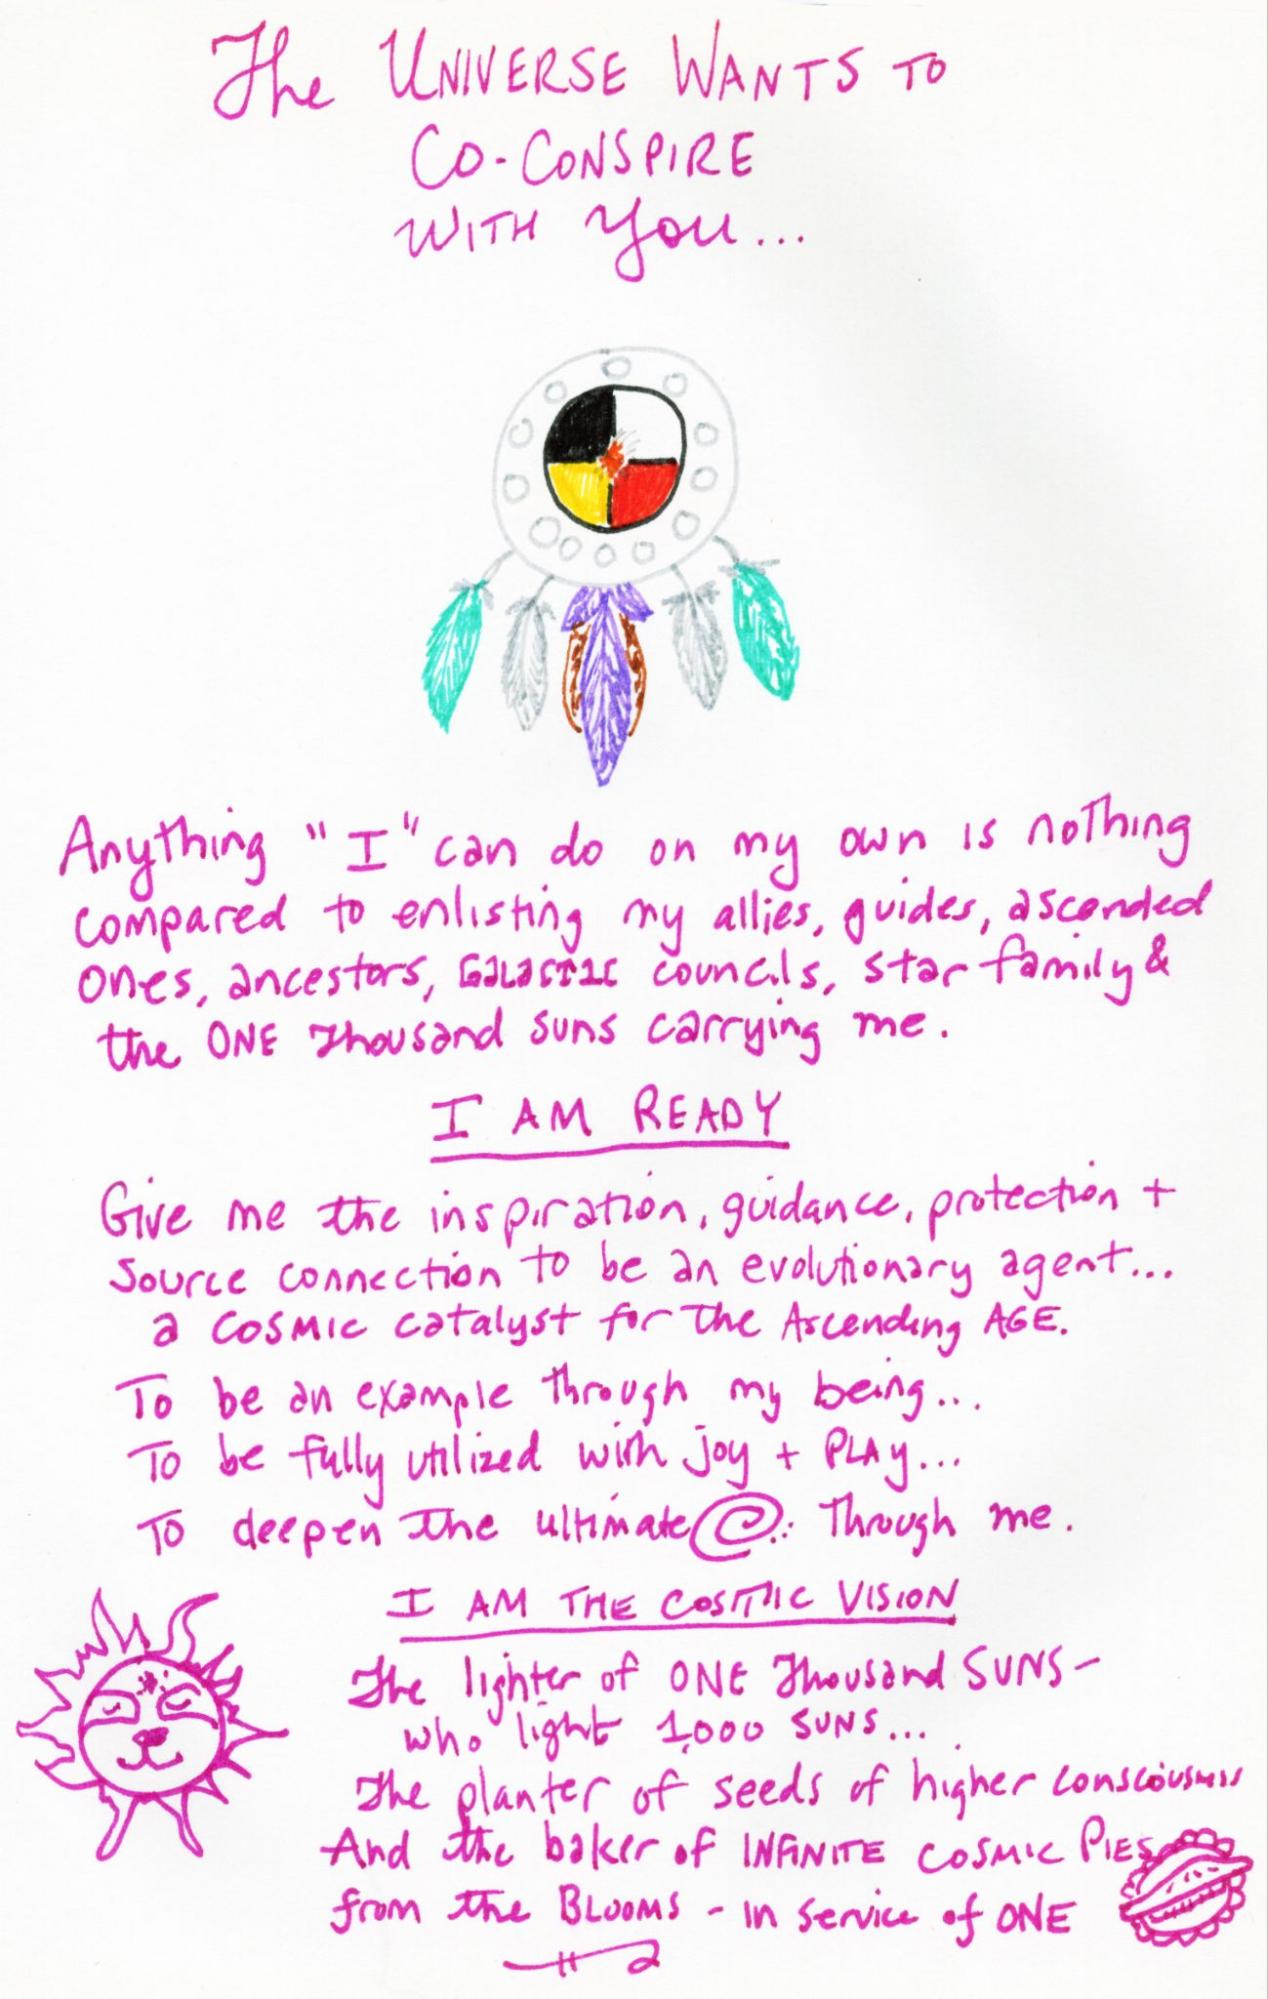 The UNIVERSE WANTS TO
CO-CONSPIRE
WITH You...
Anything "I" can do on my own is nothing
compared to enlisting my allies, guides, ascended
ones, ancestors, GALACTIC councils, star family &
the ONE Thousand suns carrying me.
I AM READY
Give me the inspiration, guidance, protection +
Source connection to be an evolutionary agent...
a COSMIC catalyst for the Ascending AGE.
To be an example through my being...
To be fully utilized with joy + PLAY...
To deepen the ultimate @: Through me.
I AM THE COSMIC VISION
The lighter of ONE Thousand SUNS -
who light 1,000 SUNS...
The planter of seeds of higher consciousness
And the baker of INFINITE COSMIC PIES
from the BLOOMS - in service of ONE